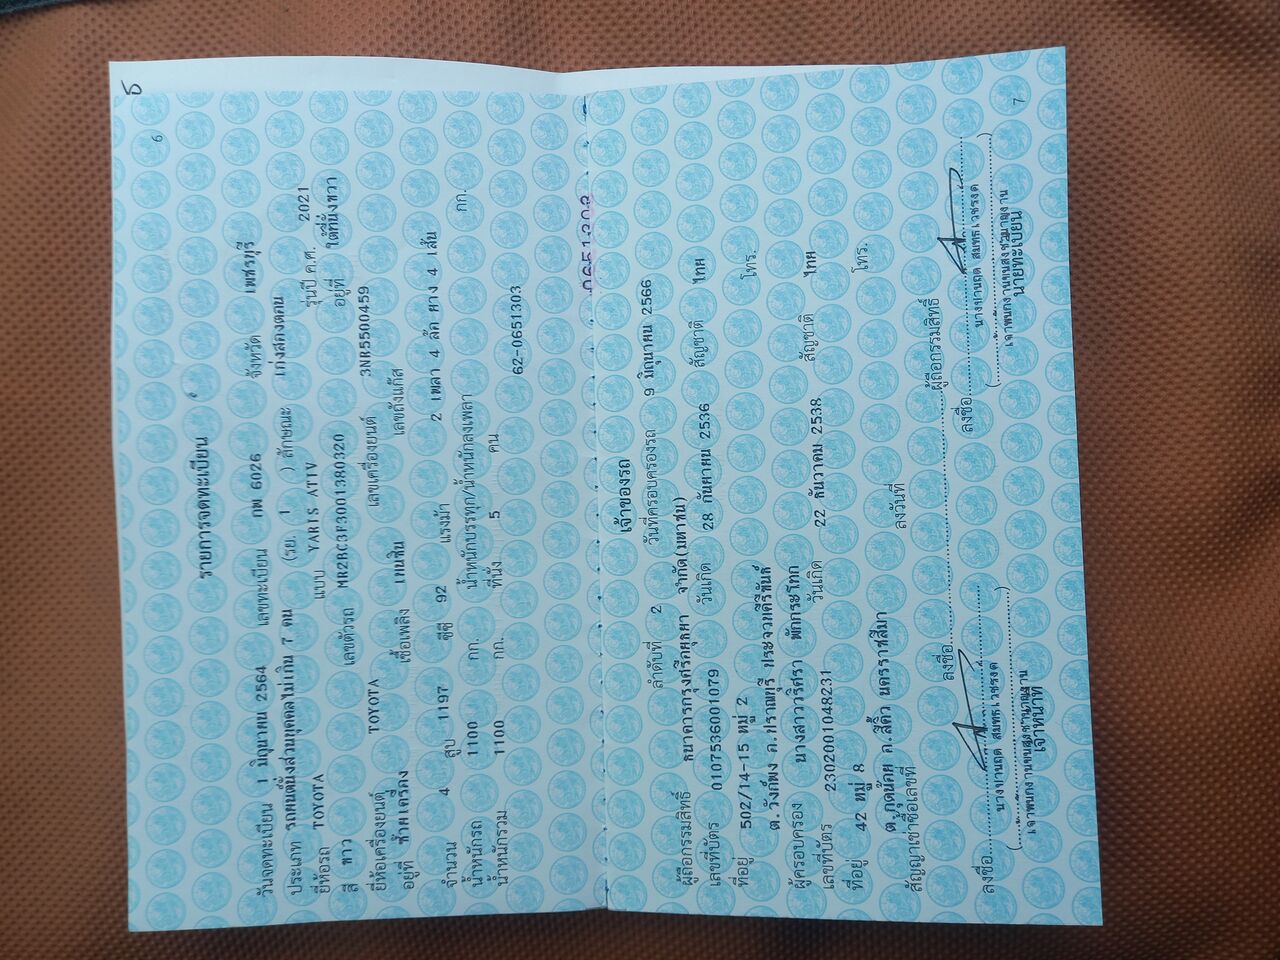 6
รายการจดทะเบียน
วันจดทะเบียน 1 มิถุนายน 2564 เลขทะเบียน กพ 6026 จังหวัด เพชรบุรี
ประเภท รถยนต์นั่งส่วนบุคคลไม่เกิน 7 คน (รย. 1 ) ลักษณะ เก๋งสองตอน
ยี่ห้อรถ TOYOTA แบบ YARIS ATIV รุ่นปี ค.ศ. 2021
สี ขาว เลขตัวรถ MR2BC3F3001380320 อยู่ที่ ใต้ที่นั่งขวา
ยี่ห้อเครื่องยนต์ TOYOTA เลขเครื่องยนต์ 3NR5500459
อยู่ที่ ซ้ายเครื่อง เชื้อเพลิง เบนซิน เลขถังแก๊ส
จำนวน 4 สูบ 1197 ซีซี 92 แรงม้า 2 เพลา 4 ล้อ ยาง 4 เส้น
น้ำหนักรถ 1100 กก. น้ำหนักบรรทุก/น้ำหนักลงเพลา กก.
น้ำหนักรวม 1100 กก. ที่นั่ง 5 คน
62-0651303
เจ้าของรถ
ลำดับที่ 2 วันที่ครอบครองรถ 9 มิถุนายน 2566
ผู้ถือกรรมสิทธิ์ ธนาคารกรุงศรีอยุธยา จำกัด(มหาชน)
เลขที่บัตร 0107536001079 วันเกิด 28 กันยายน 2536 สัญชาติ ไทย
ที่อยู่ 502/14-15 หมู่ 2 โทร.
ต.วังก์พง อ.ปราณบุรี ประจวบคีรีขันธ์
ผู้ครอบครอง นางสาววริศรา พักกระโทก
เลขที่บัตร 2302001048231 วันเกิด 22 ธันวาคม 2538 สัญชาติ ไทย
ที่อยู่ 42 หมู่ 8 โทร.
ต.กุดน้อย อ.สีคิ้ว นครราชสีมา
สัญญาเช่าซื้อเลขที่ ลงวันที่
ลงชื่อ ผู้ถือกรรมสิทธิ์
ลงชื่อ ลงชื่อ
เจ้าพนักงานขนส่งชำนาญงาน เจ้าพนักงานขนส่งชำนาญงาน
เจ้าหน้าที่ นายทะเบียน
7